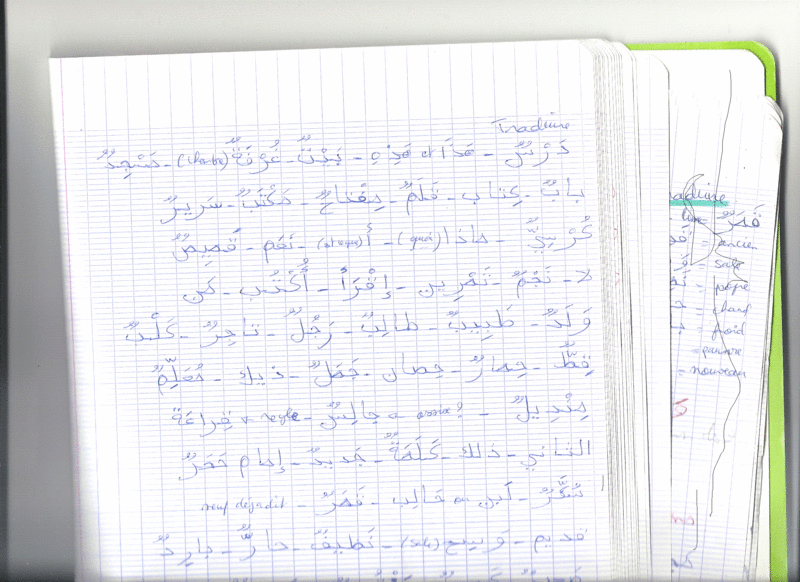 Traduire
دَرْسٌ - هَذَا et هَذِهِ - بَيْتٌ - غُرْفَةٌ (chambre) - مَسْجِدٌ
بابٌ - كِتاب - قَلَمٌ - مِفْتاحٌ - مَكْتَبٌ - سَرِيرٌ
كُرْسِيٌّ - ماذا (quoi) - أَ (est ce que) - نَعَم - قَمِيصٌ
لا - نَجْمٌ - تَمْرِين - إِقْرَأْ - أُكْتُب - مَن
وَلَدٌ - طَبِيبٌ - طالِبٌ - رَجُلٌ - تاجِرٌ - كَلْبٌ
قِطٌّ - حِمارٌ - حِصان - جَمَلٌ - ديك - مُعَلِّمٌ
مِنْدِيلٌ - جالِسٌ - قِراءَة
الثاني - ذلك - جَدِيدٌ - إمام حَجَرٌ
سُكَّرٌ - لَبَن ou حَالِب - قَمَرٌ - neuf déjà dit
قديم - وَسِخ (sale) - نَظِيفٌ - حارٌّ - بارِدٌ
Traduire
قَمَرٌ = lune
= ancien
= sale
= propre
= chaud
= froid
= pauvre
= nouveau